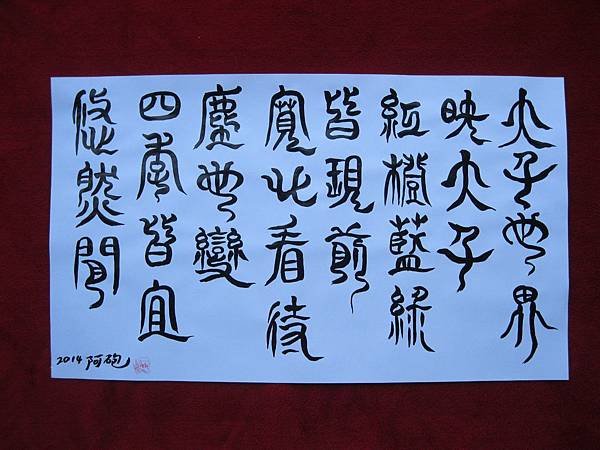 大子世界
映大子
紅橙藍綠
皆現前
寬心看待
塵世變
四季皆宜
悠然聞
2014 阿砲